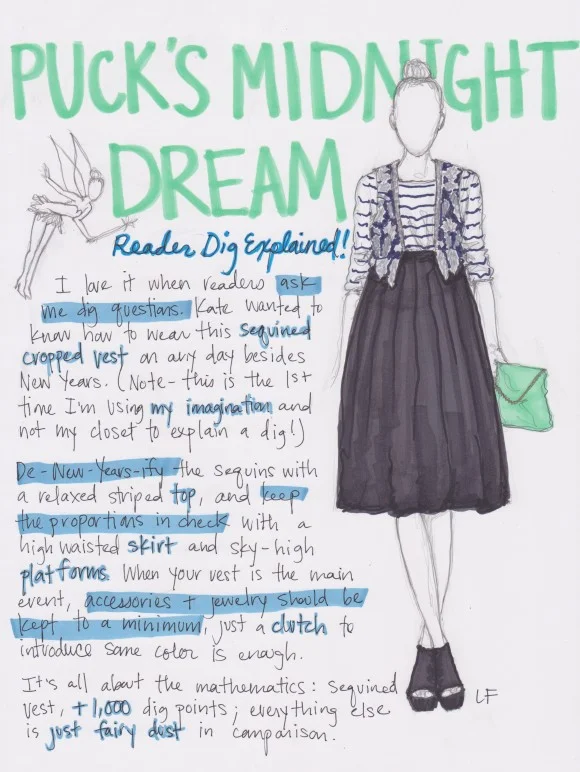 PUCK'S MIDNIGHT
DREAM
Reader Dig Explained!
I love it when readers ask
me dig questions. Kate wanted to
know how to wear this sequined
cropped vest on any day besides
New Years. (Note - this is the 1st
time I'm using my imagination and
not my closet to explain a dig!)
De-New-Years-ify the sequins with
a relaxed striped top, and keep
the proportions in check with a
high waisted skirt and sky-high
platforms. When your vest is the main
event, accessories + jewelry should be
kept to a minimum, just a clutch to
introduce some color is enough.
It's all about the mathematics: sequined
vest, +1,000 dig points; everything else
is just fairy dust in comparison.
LF